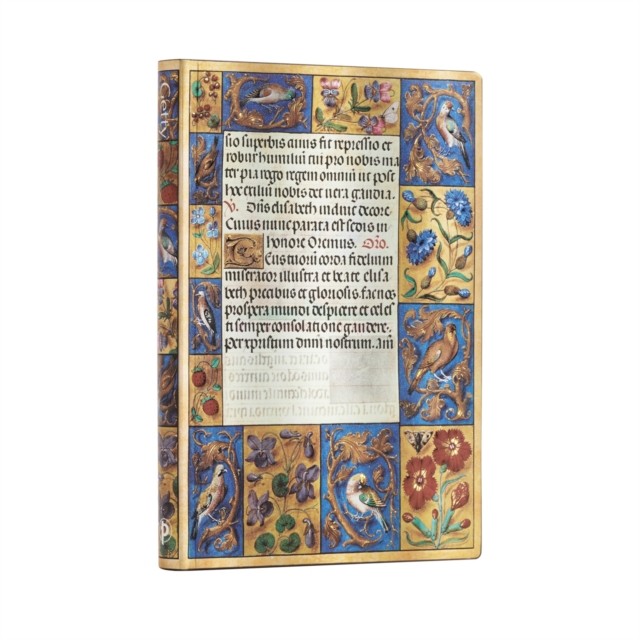 Getty
sio superbis cuius fit repressio et
robur humiliū tui pro nobis ma
ter pia rego regem omniū ut post
hoc exiliū nobis det uera gaudia.
V. Dn̄s elisabeth induit decore
Cuius nunc parata est sedis in
honore Oremus. Oro.
Deus tuorū corda fidelium
miserator illustra et beate elisa
beth precibus et gloriosis. fac nos
prospera mundi despicere et celes
ti semper consolatione gaudere.
Per xpristum dnm̄ nostrum. am̄